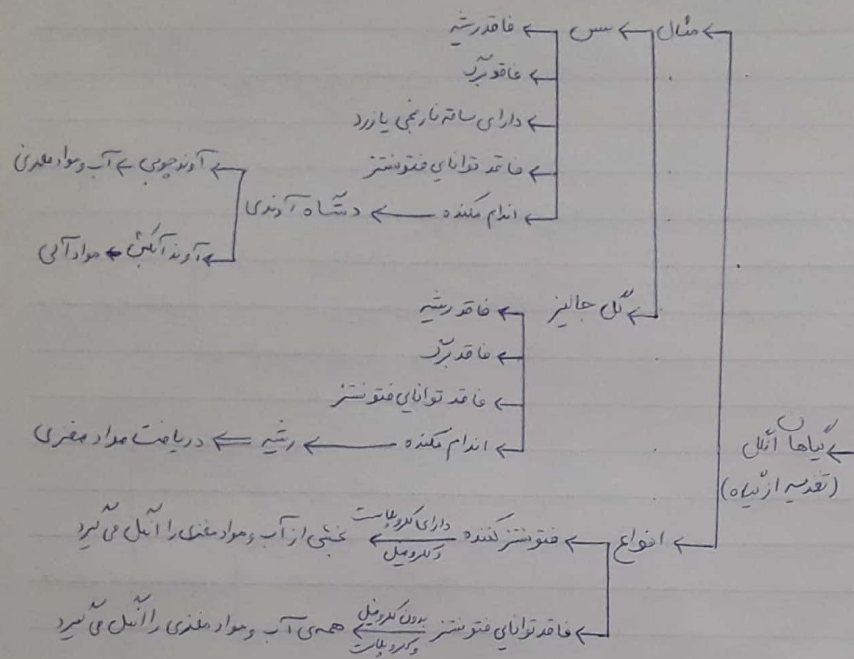 مثال ← سس ← فاقد ریشه
فاقد برگ
دارای ساقه نارنجی یا زرد
فاقد توانایی فتوسنتز
اندام مکنده ← دستگاه آوندی
آوند چوبی ← آب و مواد معدنی
آوند آبکش ← مواد آلی
گل جالیز ← فاقد ریشه
فاقد برگ
فاقد توانایی فتوسنتز
اندام مکنده ← ریشه ← دریافت مواد مغذی
گیاهان انگل
(تغذیه از گیاه)
انواع ← فتوسنتز کننده ← دارای کلروپلاست و کلروفیل ← بخشی از آب و مواد مغذی را انگل می‌گیرد
فاقد توانایی فتوسنتز ← بدون کلروفیل و کلروپلاست ← همه‌ی آب و مواد مغذی را انگل می‌گیرد